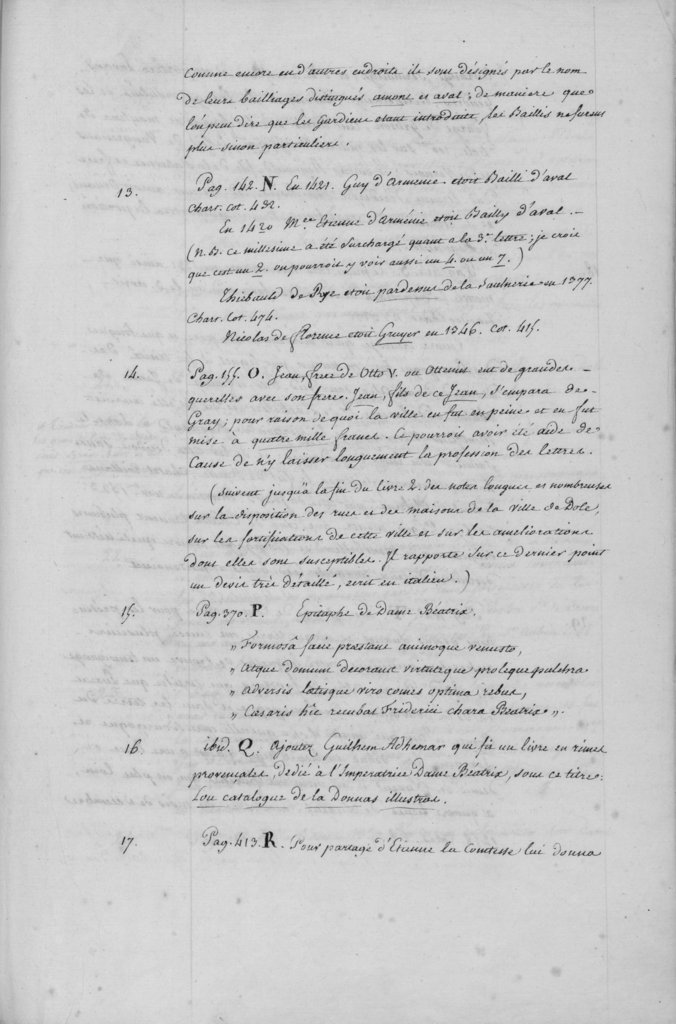 Comme encore en d'autres endroits ils sont désignés par le nom
de leurs bailliages distingués amont et aval ; de maniere que
l'on peut dire que les Gardiens etant introduits, les Baillis ne furent
plus sinon particuliers.
13. Pag. 142. N. En 1421. Guy d'Armenie etoit Bailli d'aval
Chart. cot. 492.
En 1420 Mre Etienne d'Arménie etoit Bailly d'aval. —
(N.B. ce millesime a été surchargé quant a la 3e lettre ; je crois
que c'est un 2. on pourroit y voir aussi un 4. ou un 7.)
Thiebault de Rye etoit pardessus de la Saulnerie en 1377.
Chart. Cot. 474.
Nicolas de florence etoit Gruyer en 1346. cot. 415.
14. Pag. 155. O. Jean, frere de Otto V. ou Ottenin eut de grandes
querelles avec son frere. Jean, fils de ce Jean, s'empara de
Gray ; pour raison de quoi la ville en fut en peine et en fut
mise à quatre mille francs. Ce pourroit avoir été aide de
Cause de n'y laisser longuement la profession des lettres.
(suivent jusqu'à la fin du livre 2. des notes longues et nombreuses
sur la disposition des rues et des maisons de la ville de Dole,
sur les fortifications de cette ville et sur les ameliorations
dont elles sont susceptibles. Il rapporte sur ce dernier point
un devis très détaillé, ecrit en italien.)
15. Pag. 370. P. Epitaphe de Dame Béatrix.
„ Formosâ facie praestans animoque venusto,
„ Atque domum decorans virtuteque proleque pulchra
„ Adversis laetisque viro comes optima rebus,
„ Caesaris hîc recubas Friderici chara Beatrix „.
16. ibid. Q. Ajoutez Guilhem Adhemar qui fit un livre en rimes
provençales, dedié à l'Imperatrice Dame Béatrix, sous ce titre :
Lou catalogue de la Donnas illustras.
17. Pag. 413. R. Pour partage d'Etienne la Comtesse lui donna